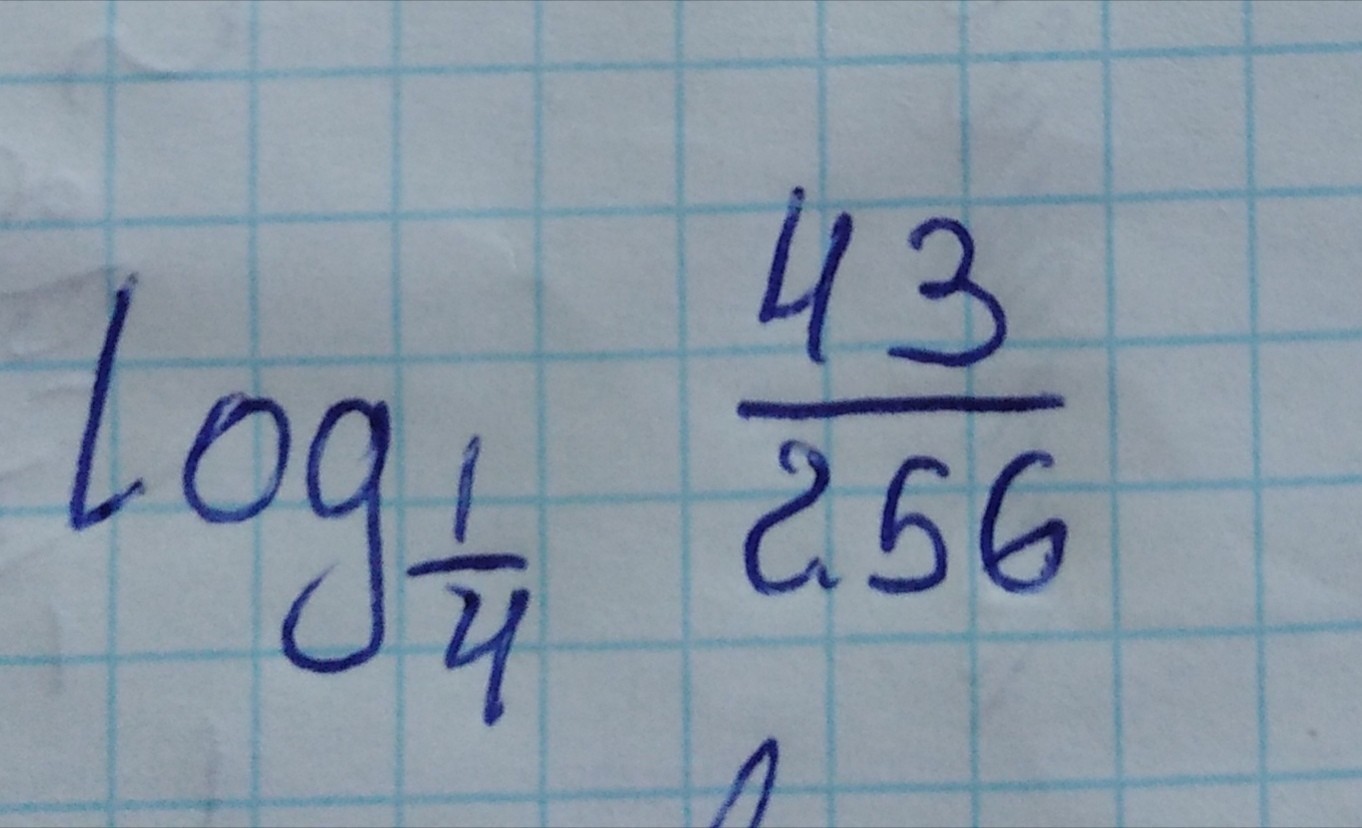 log_{\frac{1}{4}} \frac{43}{256}